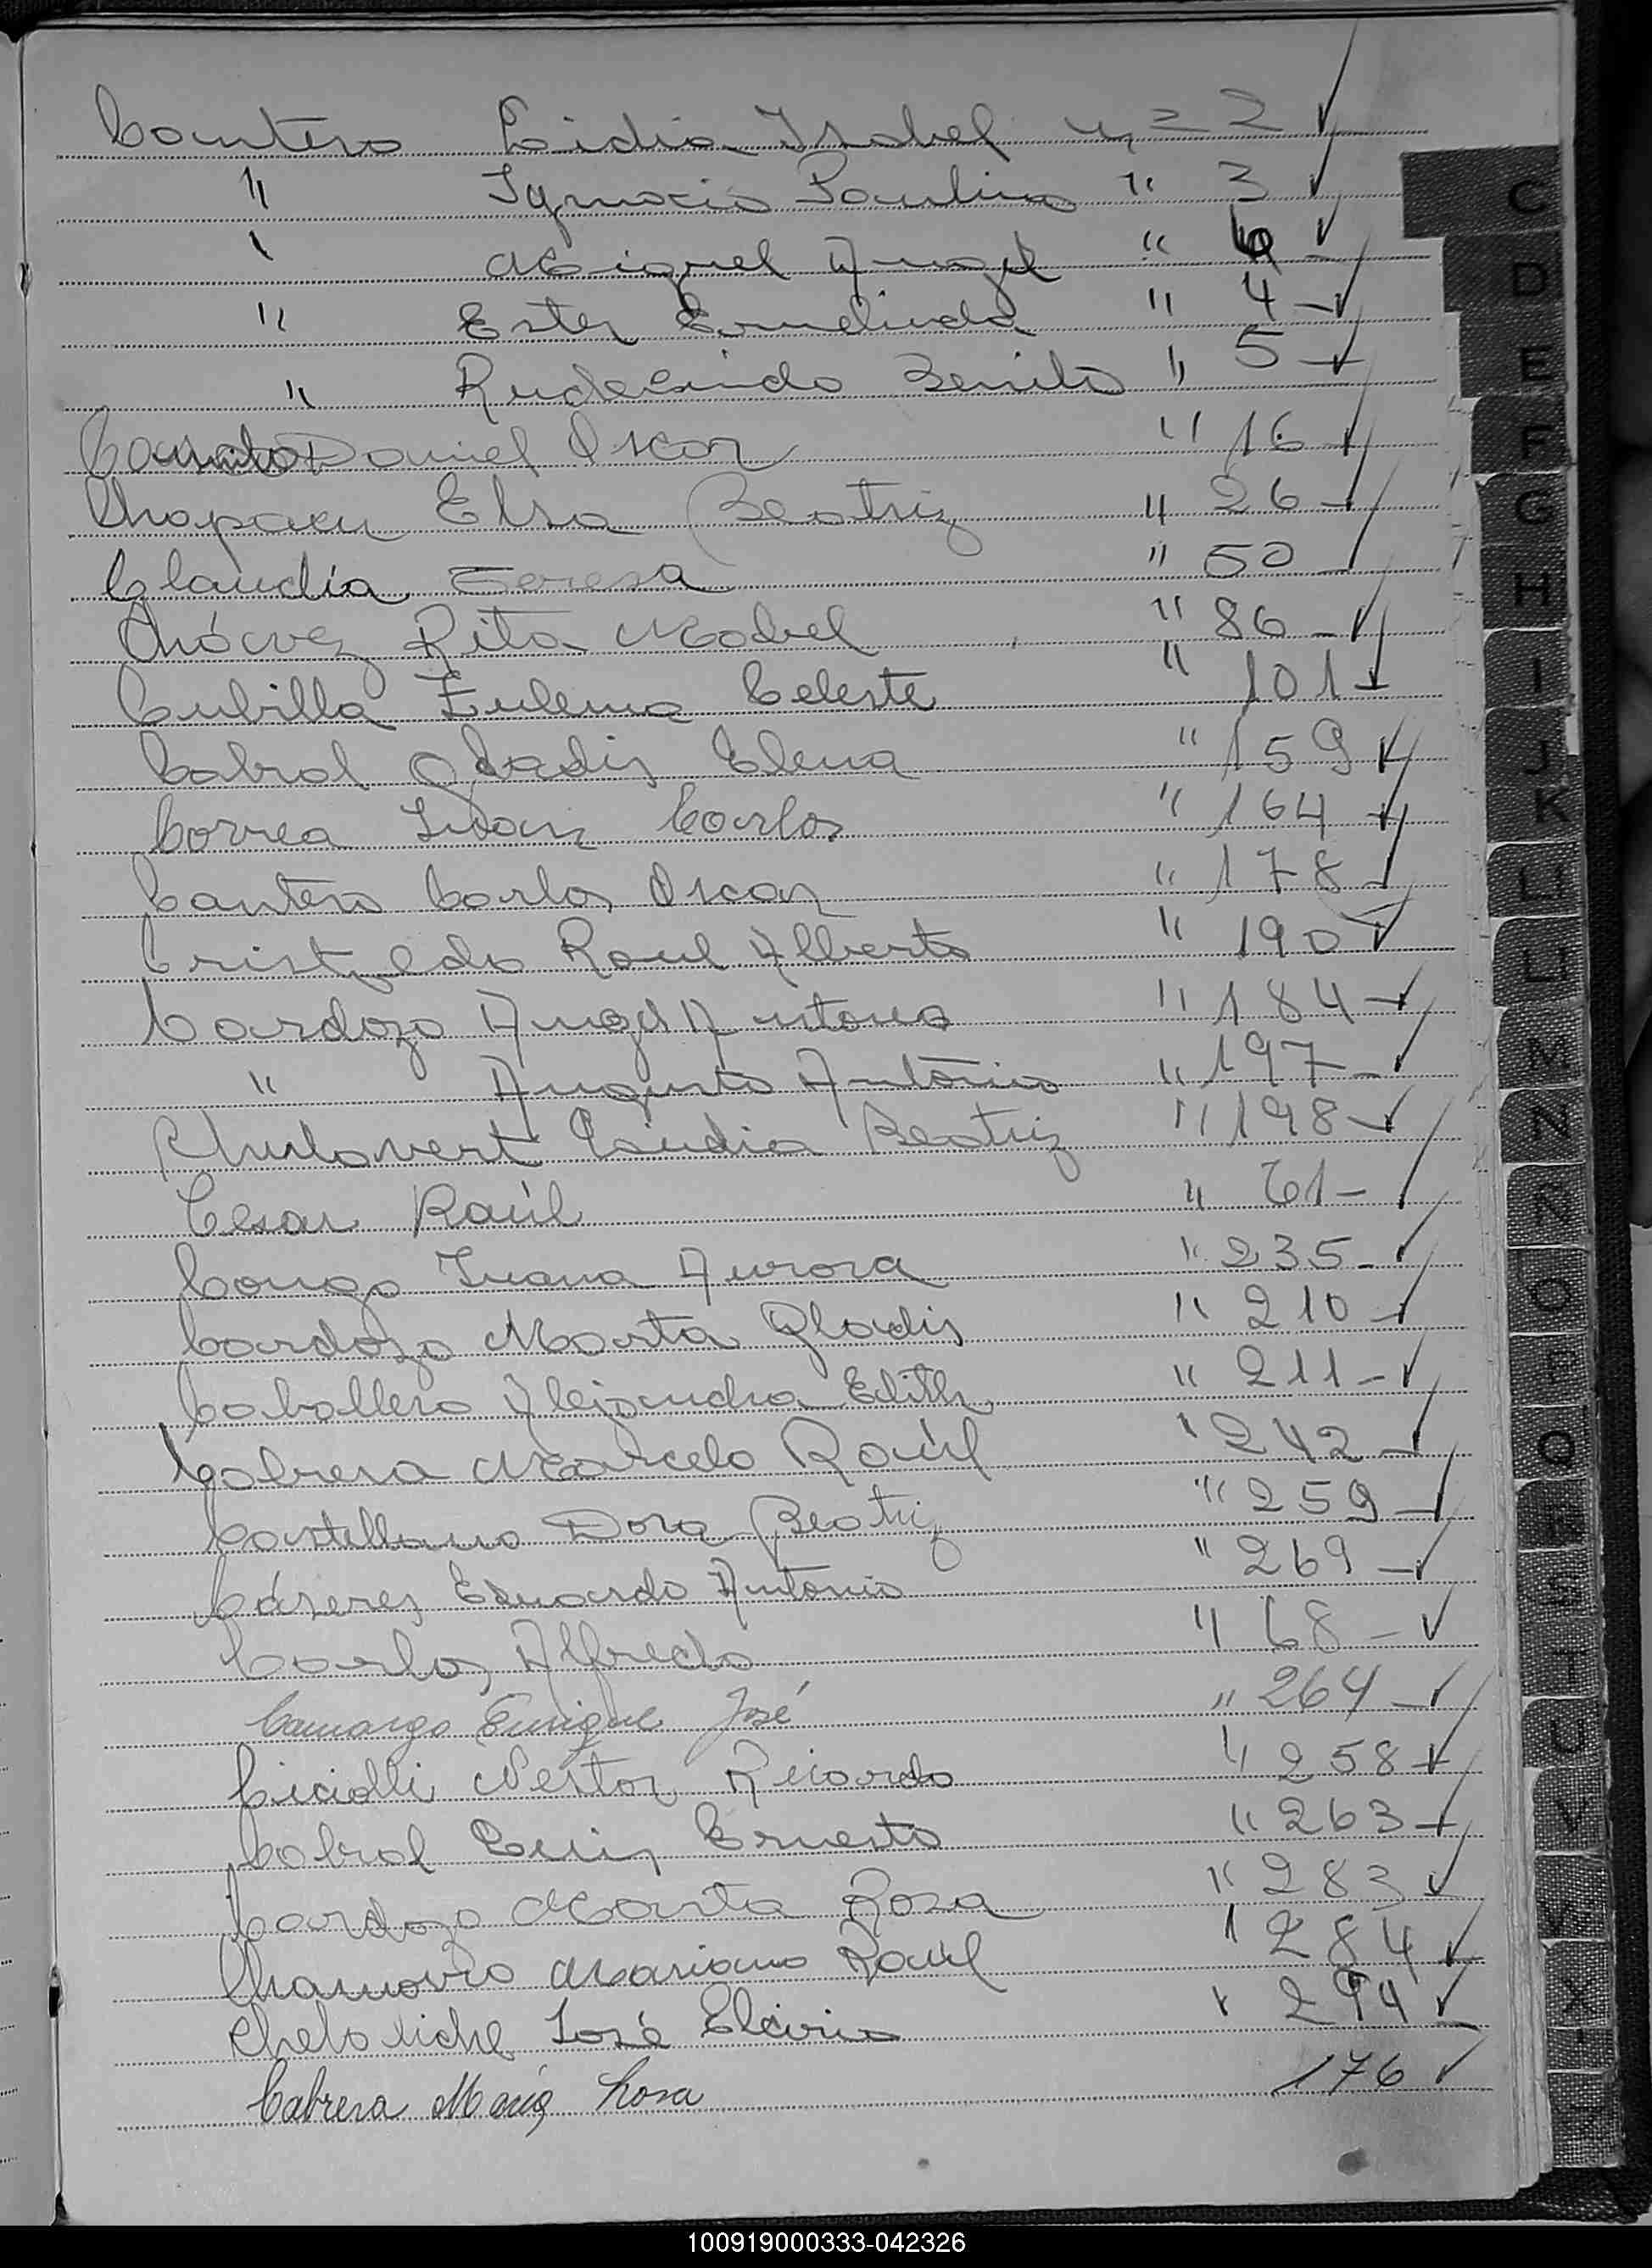 Cantero Lidia Isabel n= 2
" Ygnacio Paulino " 3
" Miguel Angel " 6
" Ester Ermelinda " 4
" Rudecindo Benito " 5
Daniel Oscar " 16
Chapacu Elsa Beatriz " 26
Claudia Teresa " 50
Chávez Rita Mabel " 86
Cubilla Zulema Celeste " 101
Cabral Gladis Elena " 159
Correa Juan Carlos " 164
Cantero Carlos Oscar " 178
Cristaldo Raul Alberto " 190
Cardozo Angel Antonio " 184
" Augusto Antonio " 197
Claudia Beatriz " 198
Cesar Raúl " 61
Congo Juana Aurora " 235
Cardozo Marta Gladis " 210
Caballero Alejandra Edith " 211
Cabrera Marcelo Raúl " 242
Castellano Dora Beatriz " 259
Cáseres Eduardo Antonio " 269
Carlos Alfredo " 68
Camargo Enrique José " 264
Ciciolli Nestor Ricardo " 258
Cabral Luis Ernesto " 263
Cardozo Marta Rosa " 283
Chamorro Mariano Raúl " 284
José " 294
Cabrera María Rosa 176
C
D
E
F
G
H
I
J
K
L
LL
M
N
Ñ
O
P
Q
R
S
T
U
V
X
100919000333-042326